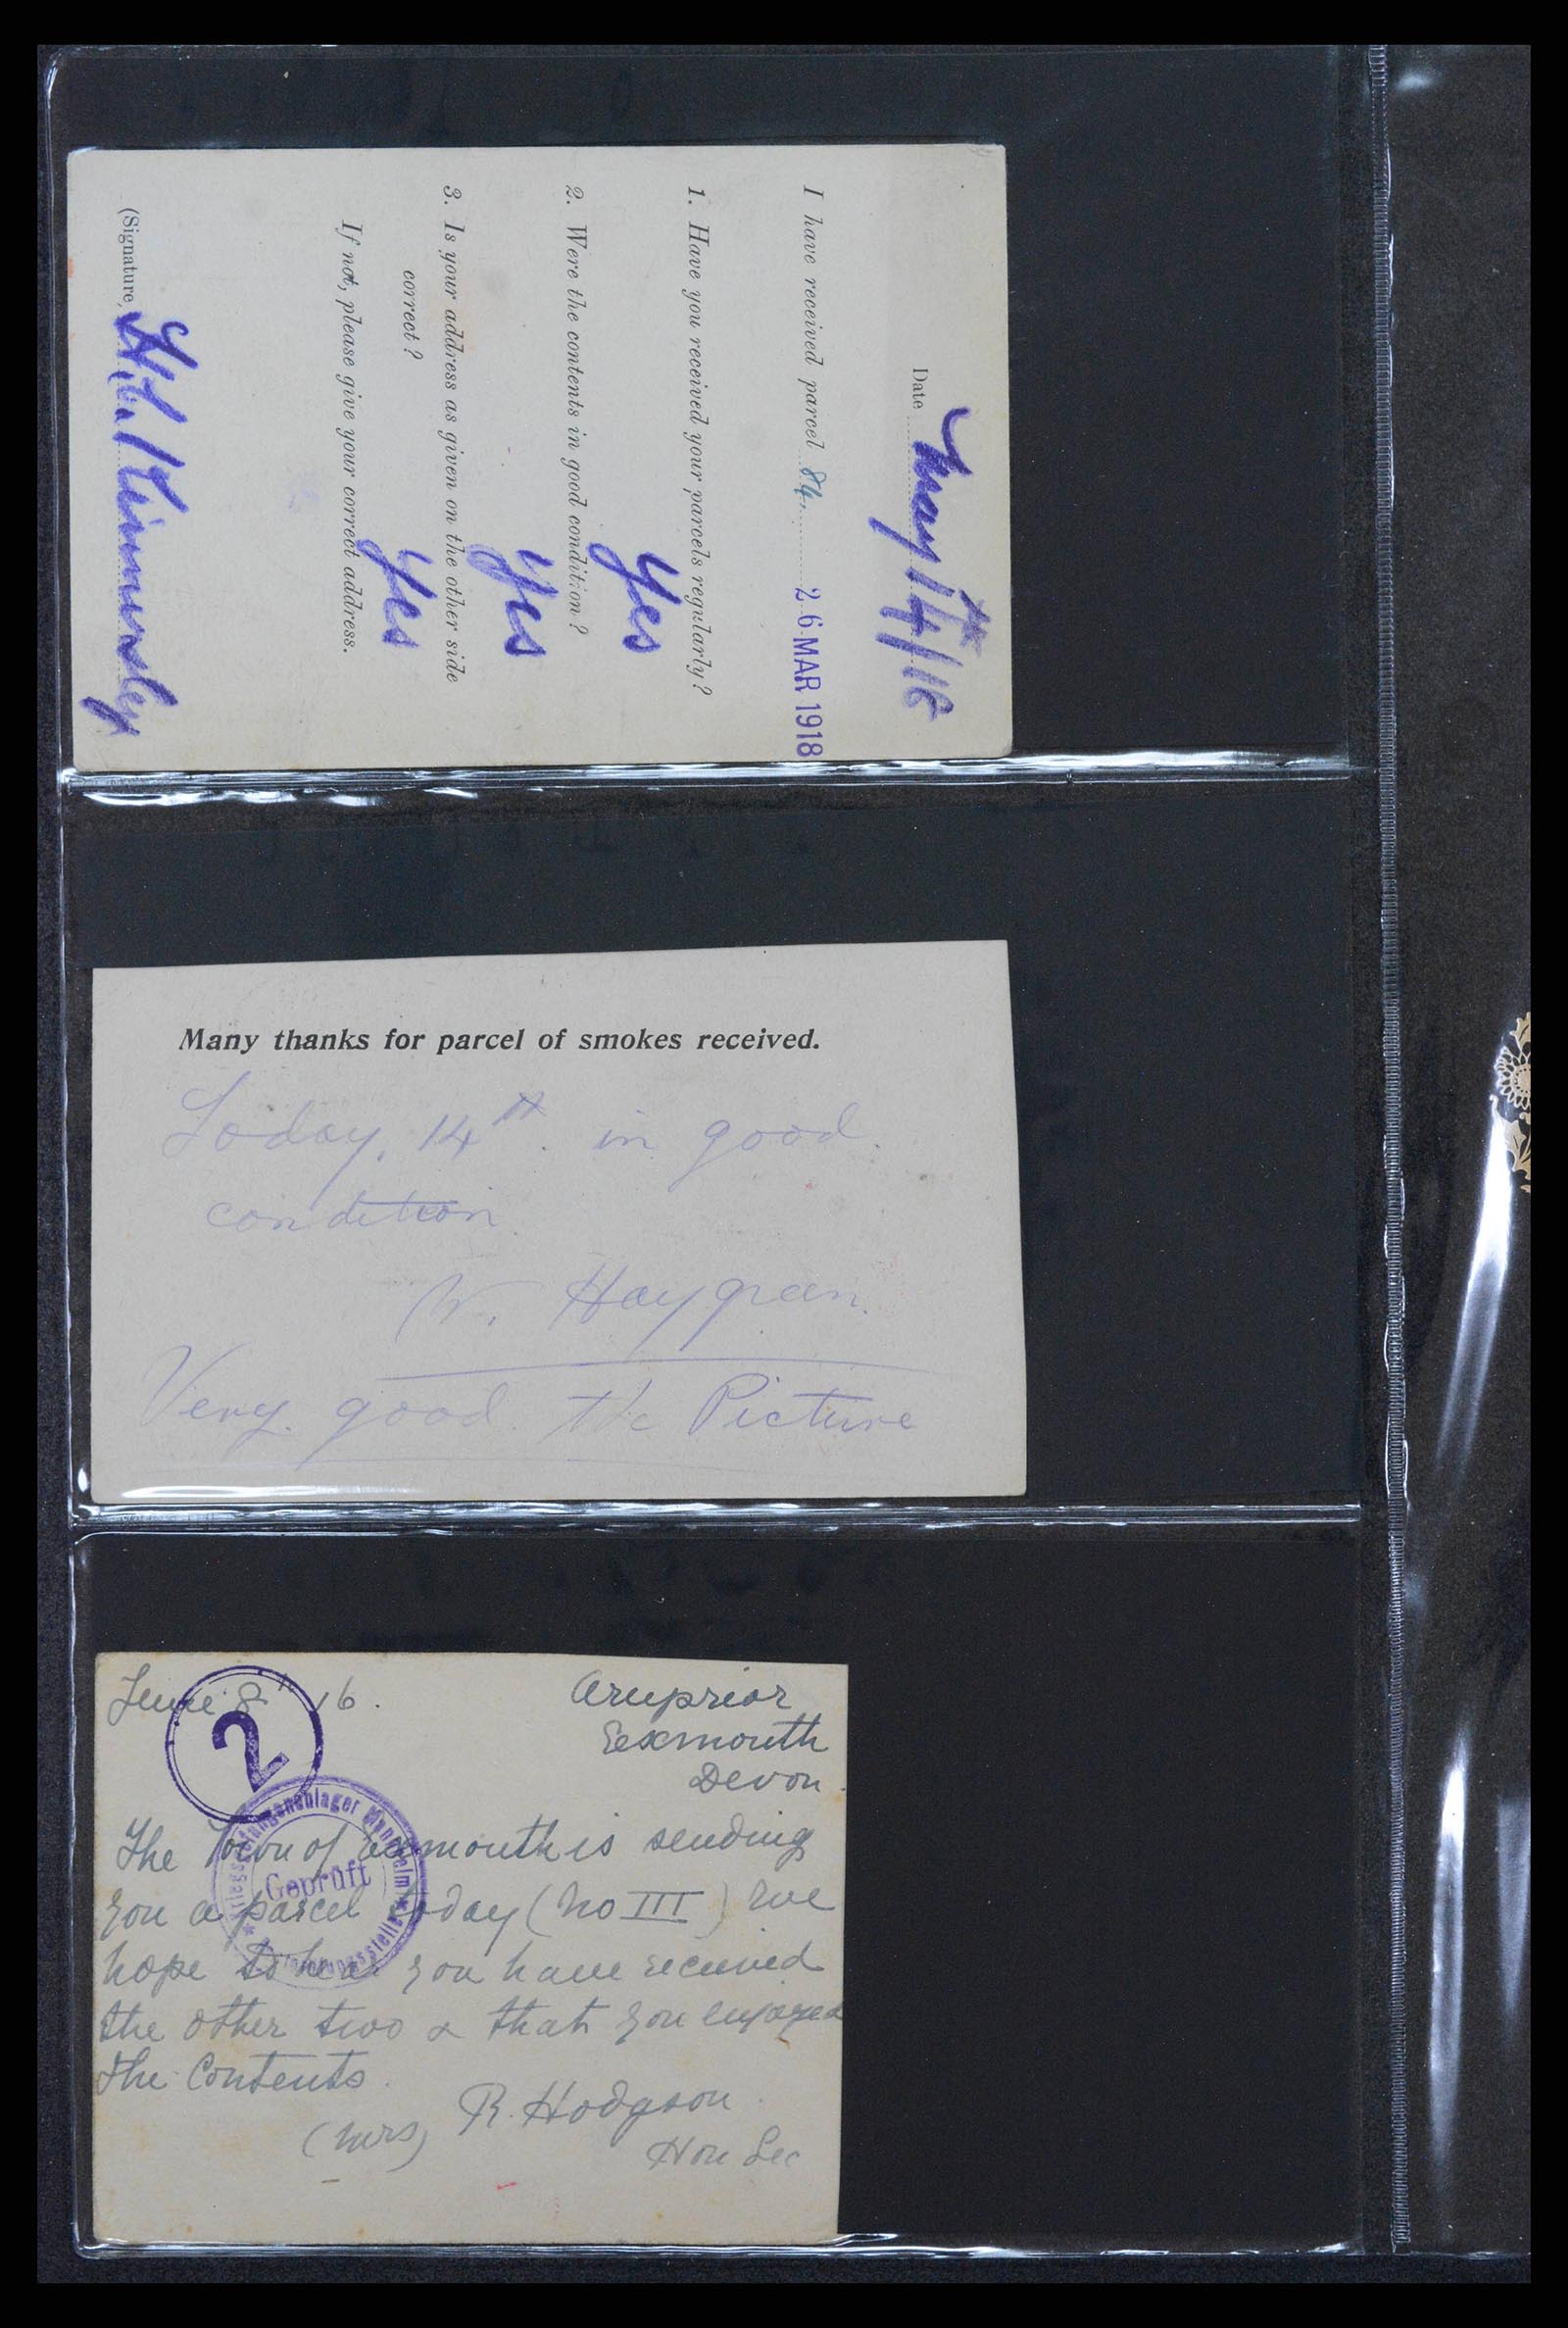 Date May 14th/18
I have received parcel 84. 26 MAR 1918
1. Have you received your parcels regularly?
Yes
2. Were the contents in good condition?
Yes
3. Is your address as given on the other side
correct?
Yes
If not, please give your correct address.
(Signature,
Many thanks for parcel of smokes received.
Today, 14th. in good.
condition
W. Haygreen.
Very good the Picture
June 8th 16.
Exmouth
Devon.
2
Geprüft
The Town of Exmouth is sending
you a parcel today (No III) we
hope to hear you have received
the other two & that you enjoyed
the Contents.
(Mrs) R. Hodgson
Hon Sec